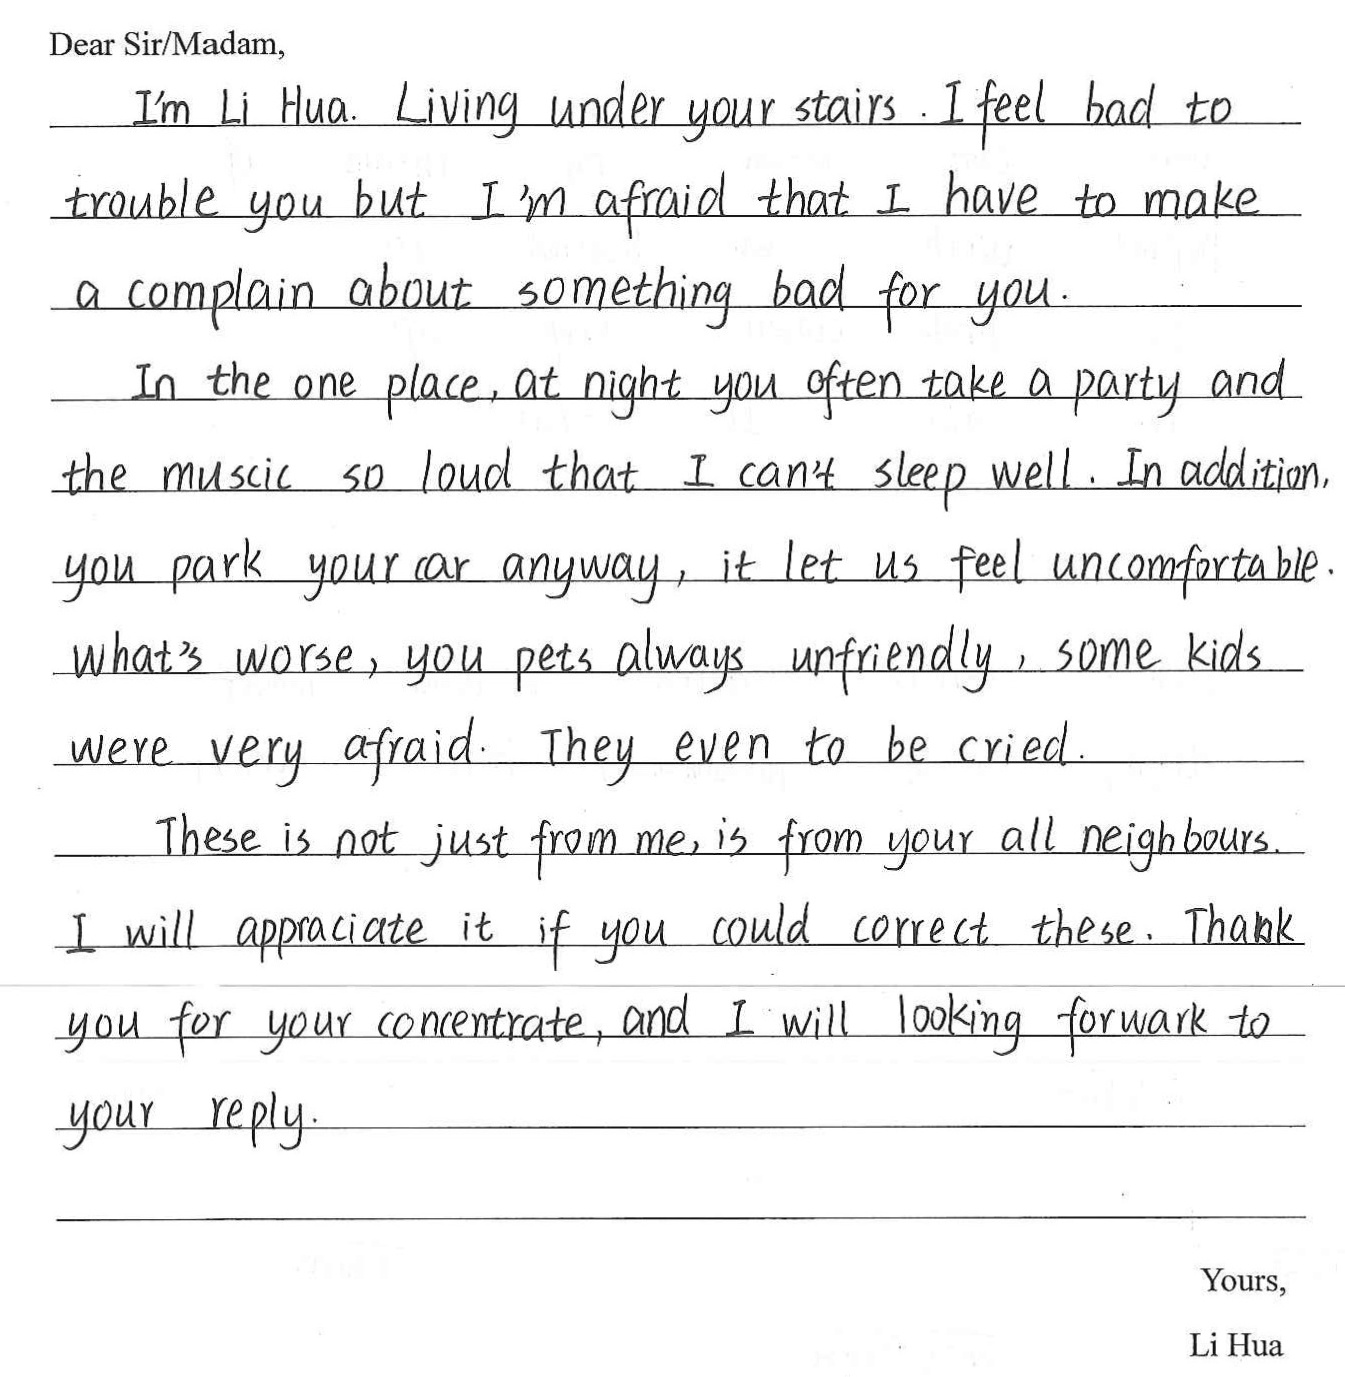 Dear Sir/Madam,
I'm Li Hua. Living under your stairs. I feel bad to
trouble you but I'm afraid that I have to make
a complain about something bad for you.
In the one place, at night you often take a party and
the muscic so loud that I can't sleep well. In addition,
you park your car anyway, it let us feel uncomfortable.
What's worse, you pets always unfriendly, some kids
were very afraid. They even to be cried.
These is not just from me, is from your all neighbours.
I will appraciate it if you could correct these. Thank
you for your concentrate, and I will looking forwark to
your reply.
Yours,
Li Hua